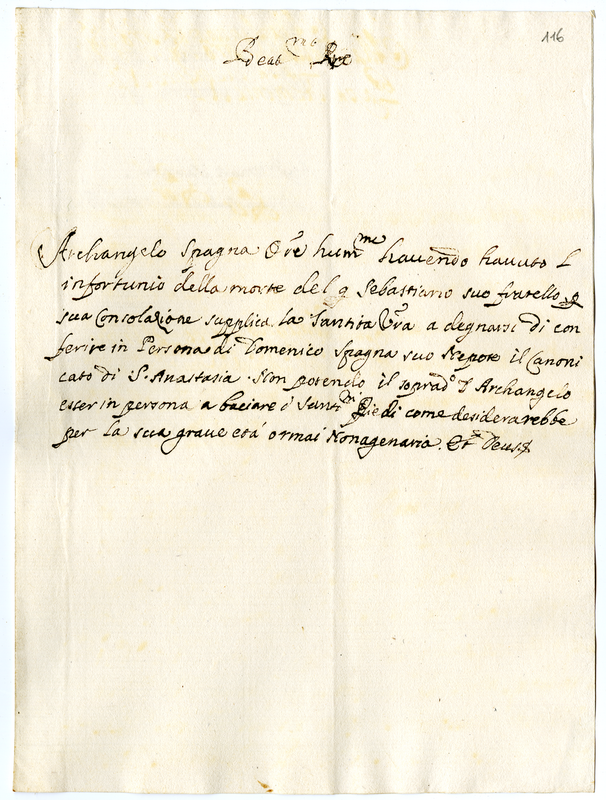 116
Beat.mo Pre
Archangelo Spagna Ore hum.mo havendo havuto l
infortunio della morte del q Sebastiano suo fratello p
sua Consolazione supplica la Santità Vra a degnarsi di con
ferire in Persona di Domenico Spagna suo Nepote il Canoni
cato di S. Anastasia. Non potendo il soprad.o Archangelo
esser in persona a baciare i Santi.mi Piedi come desiderarebbe
per la sua grave età ormai Nonagenaria. Et Deus